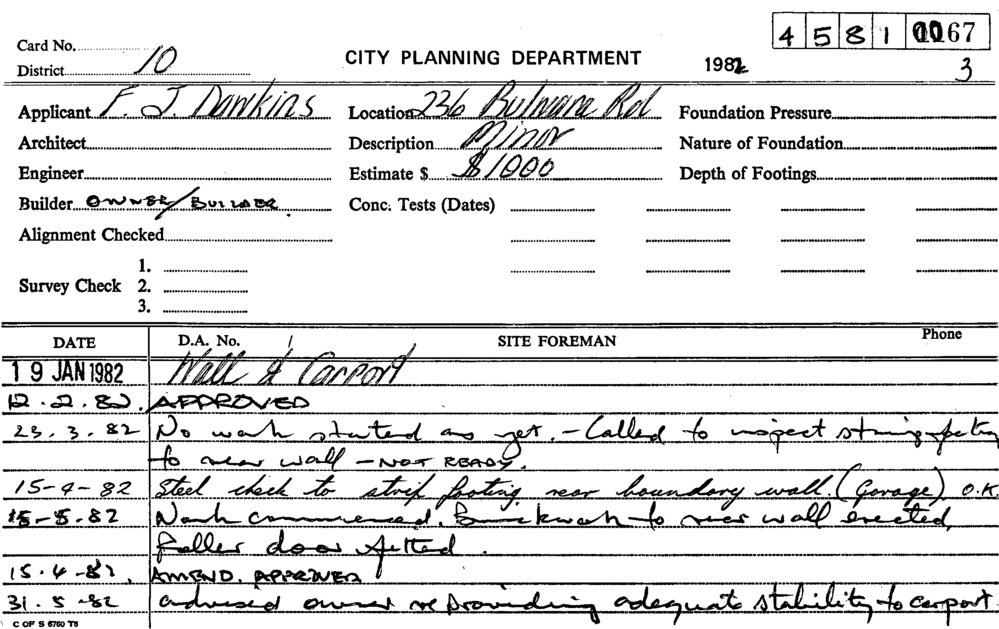 4 5 8 1 0067
Card No.
District 10
CITY PLANNING DEPARTMENT
1982
3
Applicant F. J. Dawkins
Location 236 Bulwara Rd
Foundation Pressure
Architect
Description Minor
Nature of Foundation
Engineer
Estimate $ $1000
Depth of Footings
Builder OWNER/BUILDER
Conc. Tests (Dates)
Alignment Checked
1.
Survey Check 2.
3.
DATE D.A. No. SITE FOREMAN Phone
19 JAN 1982 Wall & Carport
12.2.82. APPROVED
23.3.82 No work started as yet. - Called to inspect strip footing
to rear wall - NOT READY.
15-4-82 Steel check to strip footing rear boundary wall. (Garage) O.K.
15-5.82 Work commenced. Brickwork to rear wall erected,
Roller door fitted.
15.4-82. AMEND. APPROVED
31.5-82 advised owner re providing adequate stability to carport.
C OF S 6760 T6